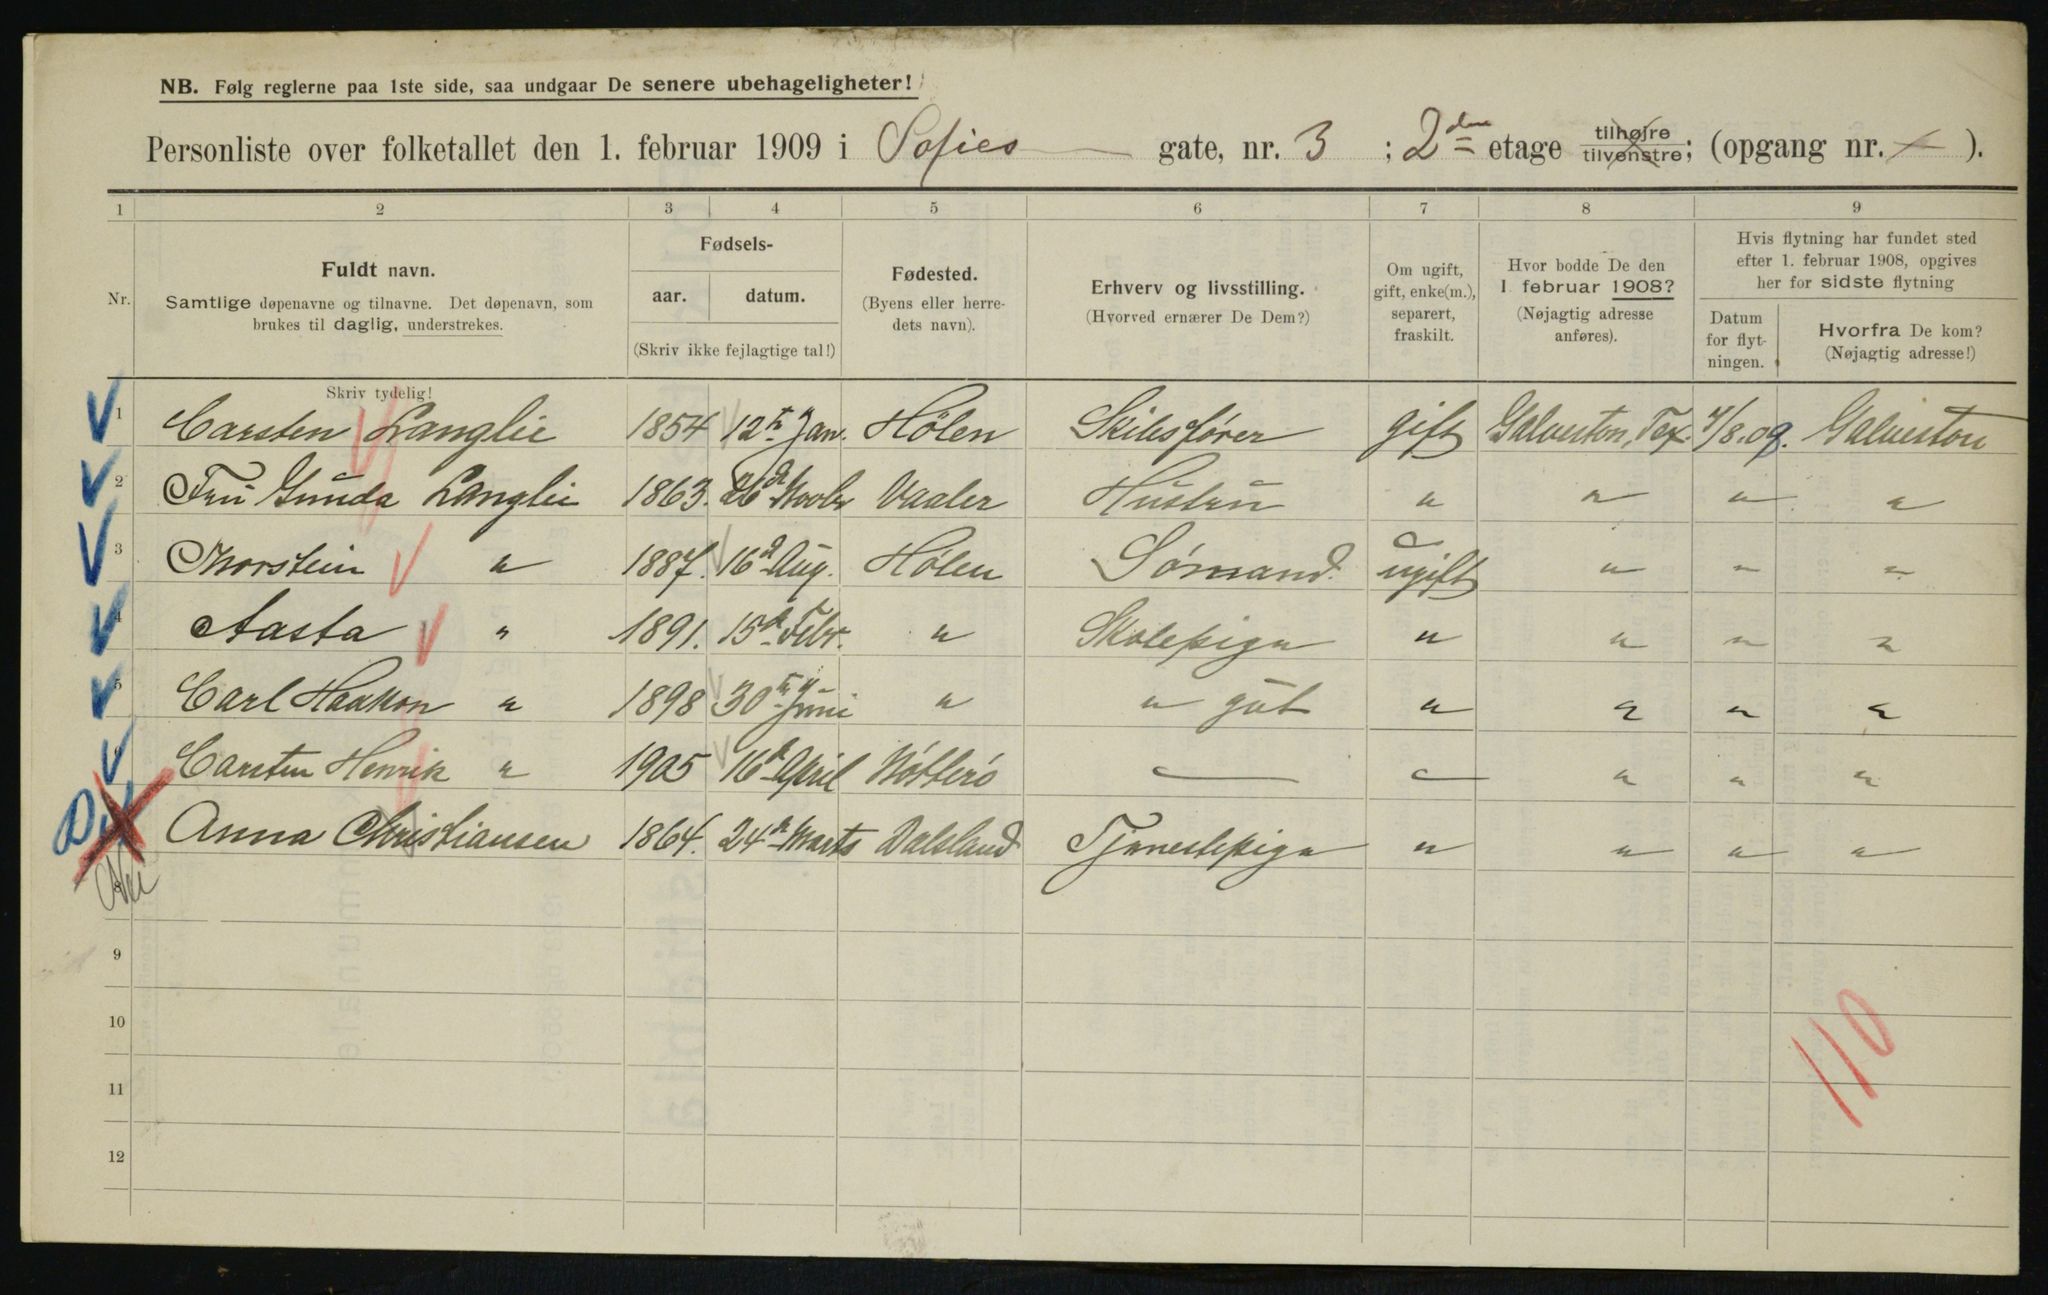 NB. Følg reglerne paa 1ste side, saa undgaar De senere ubehageligheter!
Personliste over folketallet den 1. februar 1909 i Sofies gate, nr. 3 ; 2den etage tilhøjre tilvenstre; (opgang nr. ).
1 2 3 4 5 6 7 8 9
Nr.
Fuldt navn.
Samtlige døpenavne og tilnavne. Det døpenavn, som
brukes til daglig, understrekes.
Skriv tydelig!
Fødsels-
aar. datum.
(Skriv ikke fejlagtige tal!)
Fødested.
(Byens eller herre-
dets navn).
Erhverv og livsstilling.
(Hvorved ernærer De Dem?)
Om ugift,
gift, enke(m.),
separert,
fraskilt.
Hvor bodde De den
1 februar 1908?
(Nøjagtig adresse
anføres).
Hvis flytning har fundet sted
efter 1. februar 1908, opgives
her for sidste flytning
Datum
for flyt-
ningen.
Hvorfra De kom?
(Nøjagtig adresse!)
1 Carsten Langlie 1854 12te Jan. Hölen Skibsfører gift Galveston, Tex. /8.09. Galveston
2 Fru Gunda Langlie 1863. 26d Novbr Vaaler Hustru " " " "
3 Thorstein " 1887. 16d Aug. Hölen Sømand. ugift " " "
4 Aasta " 1891. 15d Febr. " Skolepige " " " "
5 Carl Haakon " 1898 30te Juni " " gut " " " "
6 Carsten Henrik " 1905 16d April Nötterö — — " " "
Anna Christiansen 1864. 24d Marts Dalsland Tjenestepige " " " "
8
9
10
11
12
110